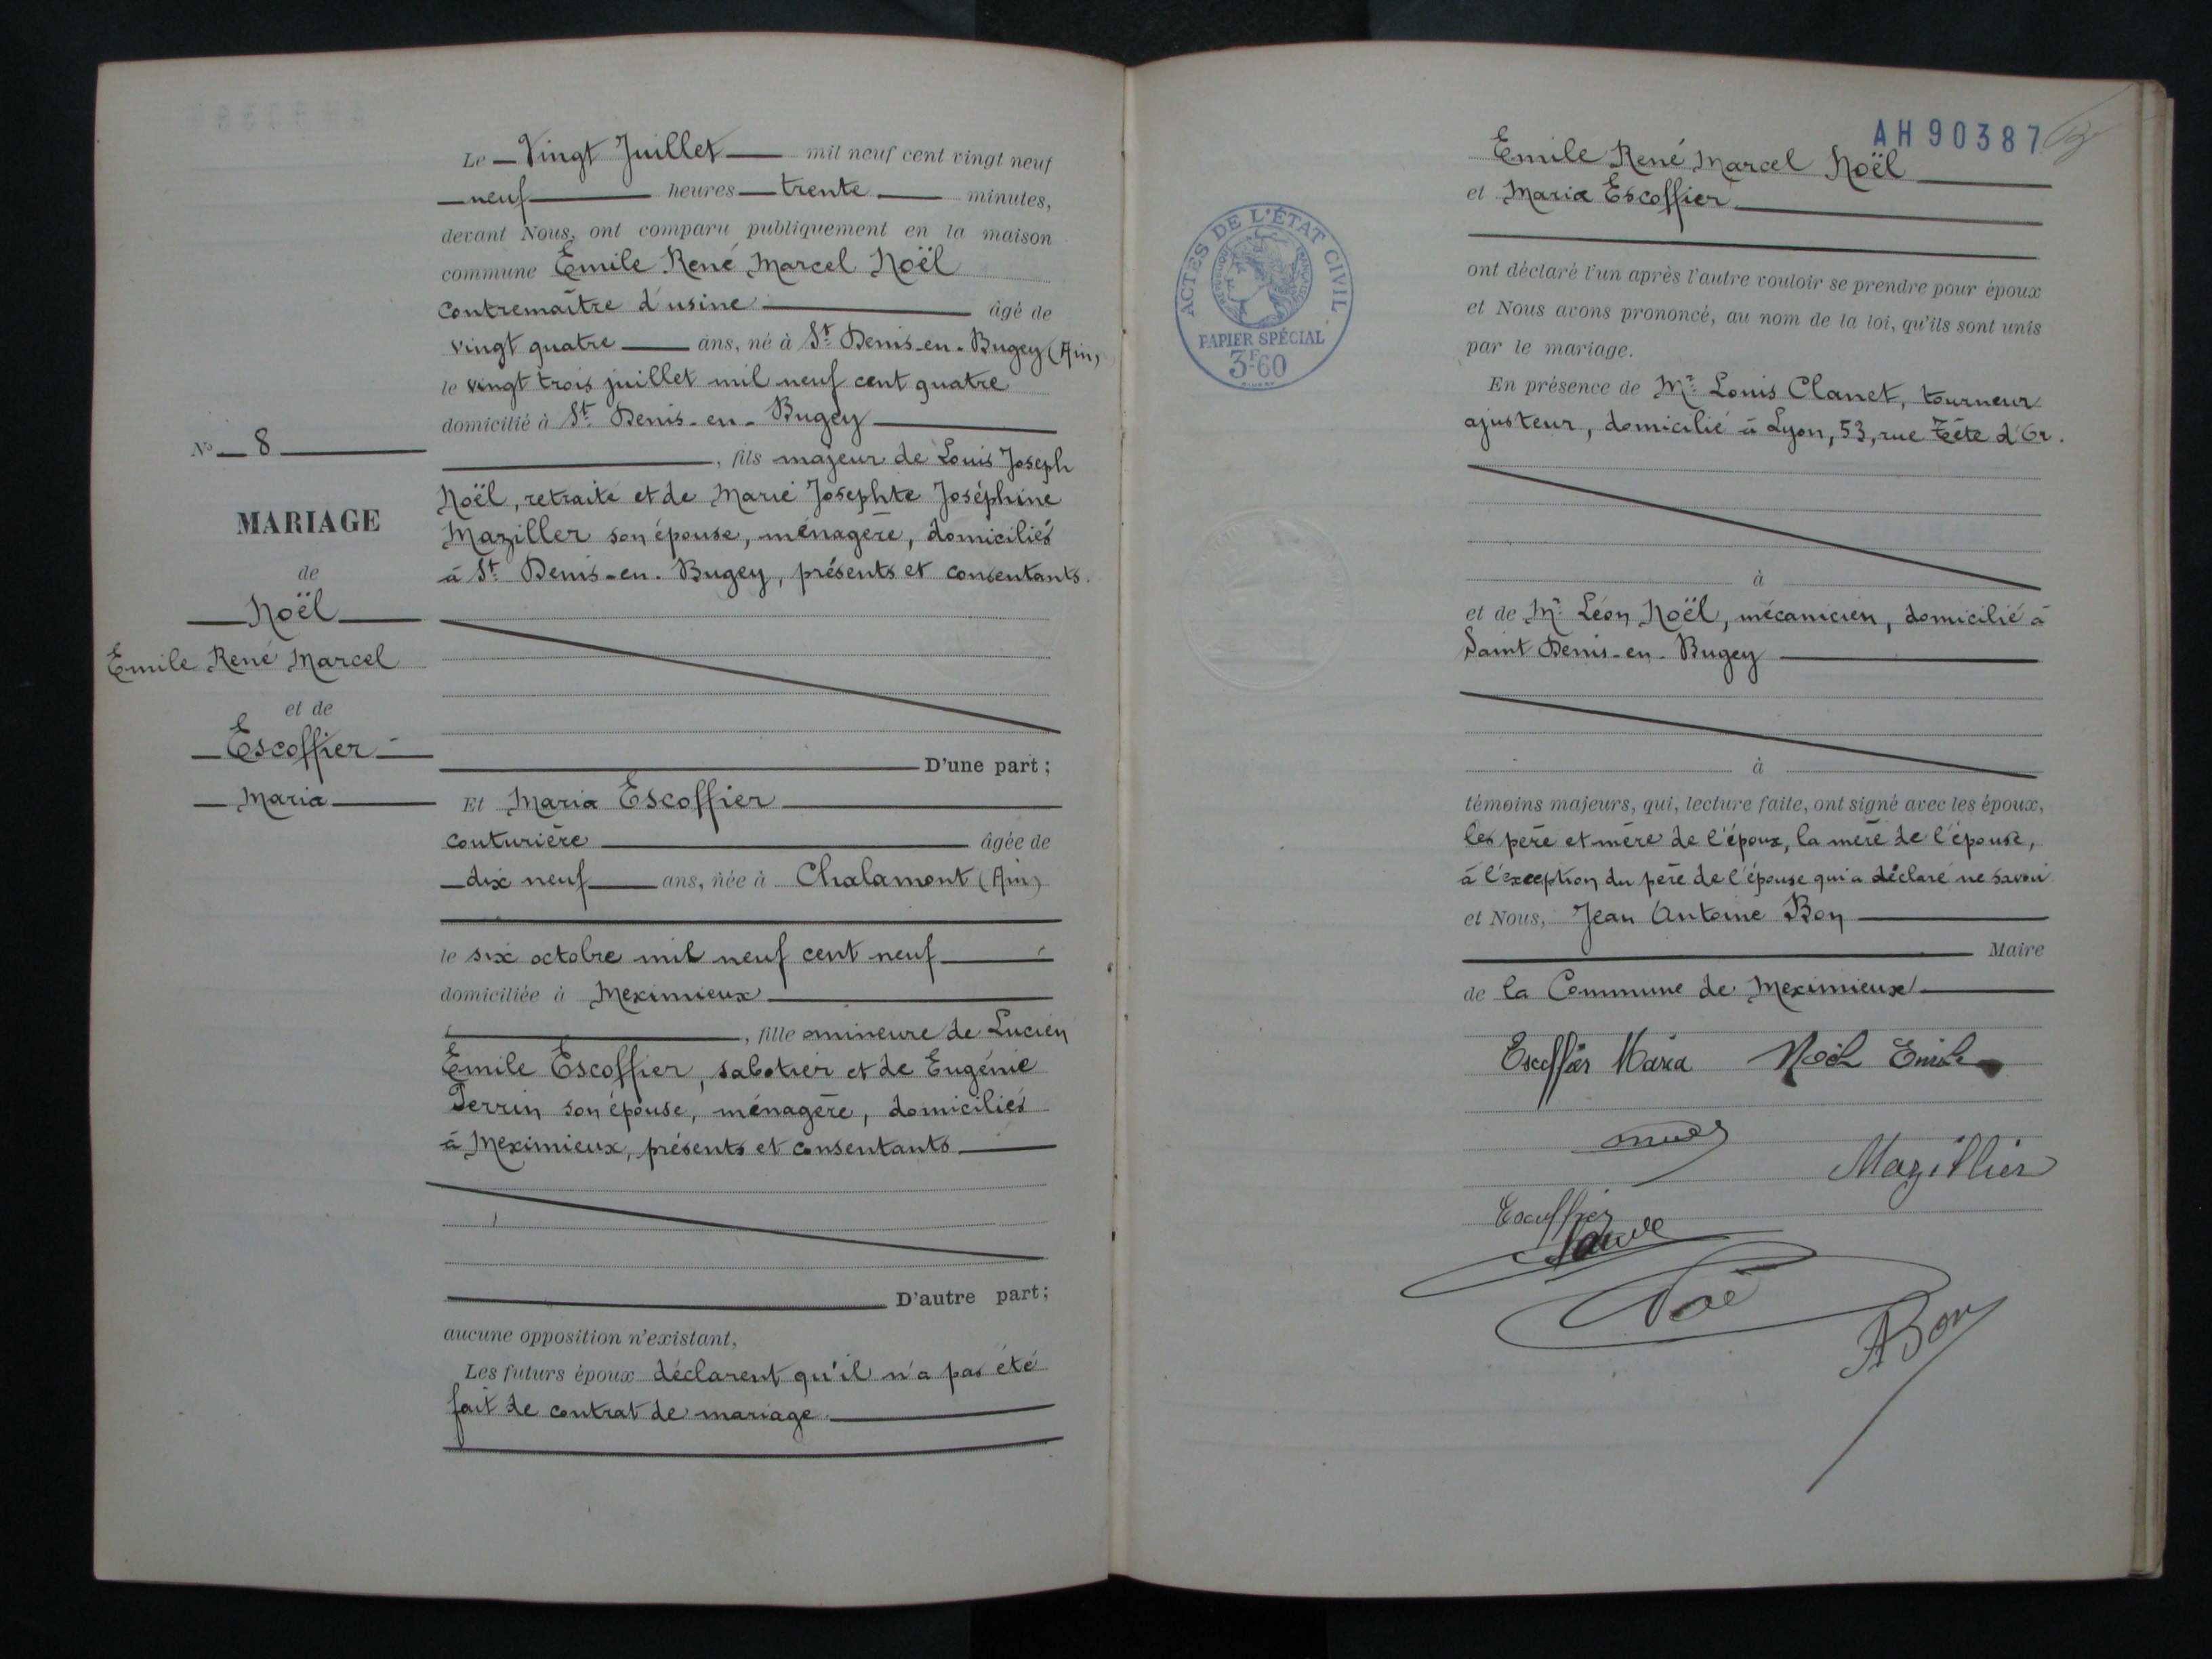 N° 8
MARIAGE
de
Noël
Emile René Marcel
et de
Escoffier
Maria
Le Vingt Juillet mil neuf cent vingt neuf
neuf heures trente minutes,
devant Nous, ont comparu publiquement en la maison
commune Emile René Marcel Noël
Contremaître d'usine âgé de
vingt quatre ans, né à St Denis-en-Bugey (Ain)
le vingt trois juillet mil neuf cent quatre
domicilié à St Denis-en-Bugey
, fils majeur de Louis Joseph
Noël, retraité et de Marie Josephte Joséphine
Maziller son épouse, ménagère, domiciliés
à St Denis-en-Bugey, présents et consentants.
D'une part ;
Et Maria Escoffier
couturière âgée de
dix neuf ans, née à Chalamont (Ain)
le six octobre mil neuf cent neuf
domiciliée à Meximieux
, fille mineure de Lucien
Emile Escoffier, sabotier et de Eugénie
Perrin son épouse, ménagère, domiciliés
à Meximieux, présents et consentants
D'autre part ;
aucune opposition n'existant,
Les futurs époux déclarent qu'il n'a pas été
fait de contrat de mariage.
AH 90387
ACTES DE L'ÉTAT CIVIL
RÉPUBLIQUE FRANÇAISE
PAPIER SPÉCIAL
3F60
Emile René Marcel Noël
et Maria Escoffier
ont déclaré l'un après l'autre vouloir se prendre pour époux
et Nous avons prononcé, au nom de la loi, qu'ils sont unis
par le mariage.
En présence de Mr Louis Clanet, tourneur
ajusteur, domicilié à Lyon, 53, rue Tête d'Or.
à
et de Mr Léon Noël, mécanicien, domicilié à
Saint Denis-en-Bugey
à
témoins majeurs, qui, lecture faite, ont signé avec les époux,
les père et mère de l'époux, la mère de l'épouse,
à l'exception du père de l'épouse qui a déclaré ne savoir
et Nous, Jean Antoine Bon
Maire
de la Commune de Meximieux
Escoffier Maria Noël Emile
Mazillier
Escoffier
Noë
ABon